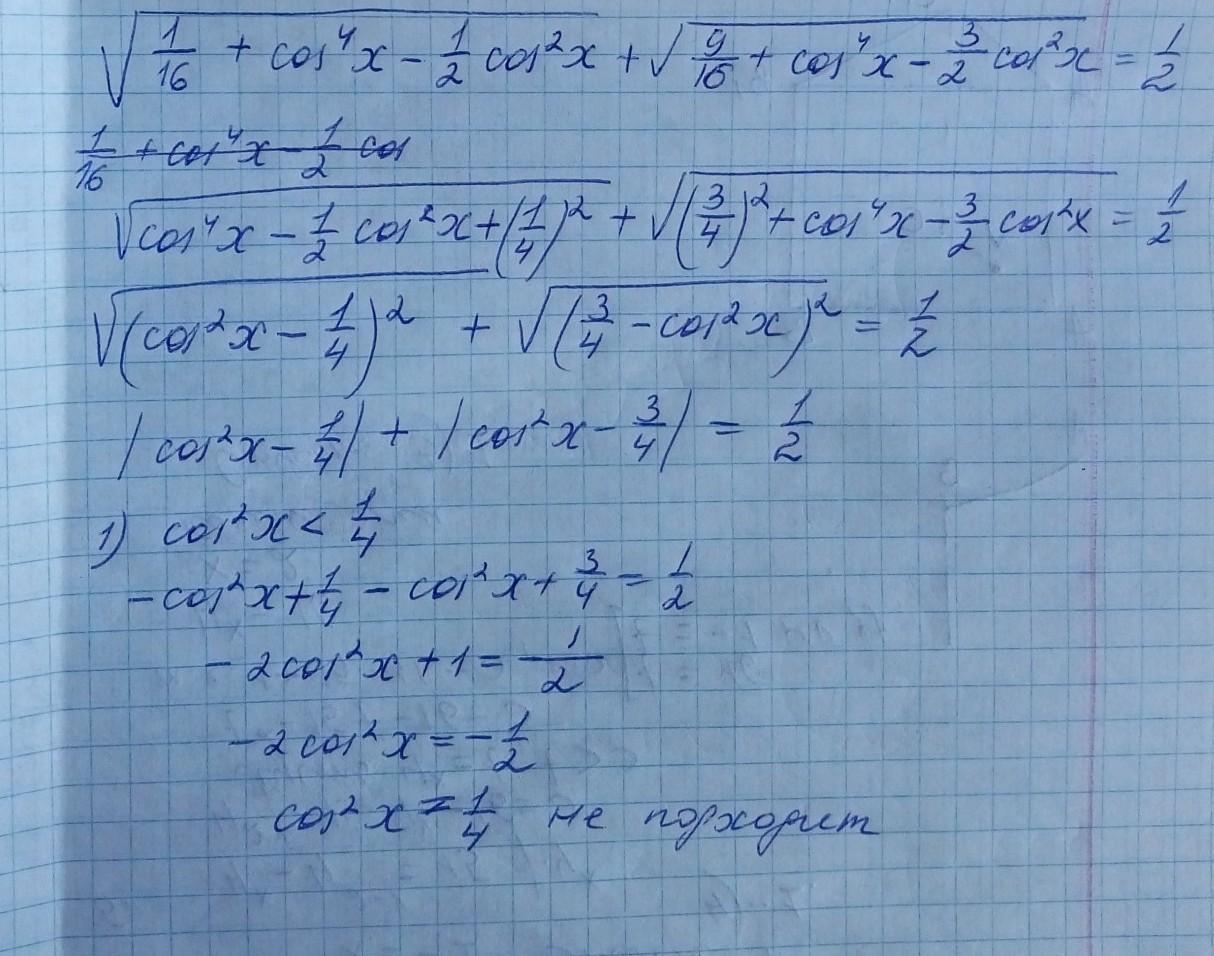 √(1/16 + cos⁴x − 1/2 cos²x) + √(9/16 + cos⁴x − 3/2 cos²x) = 1/2
1/16 + cos⁴x − 1/2 cos
√(cos⁴x − 1/2 cos²x + (1/4)²) + √((3/4)² + cos⁴x − 3/2 cos²x) = 1/2
√((cos²x − 1/4)²) + √((3/4 − cos²x)²) = 1/2
|cos²x − 1/4| + |cos²x − 3/4| = 1/2
1) cos²x < 1/4
−cos²x + 1/4 − cos²x + 3/4 = 1/2
−2cos²x + 1 = 1/2
−2cos²x = −1/2
cos²x = 1/4 не подходит